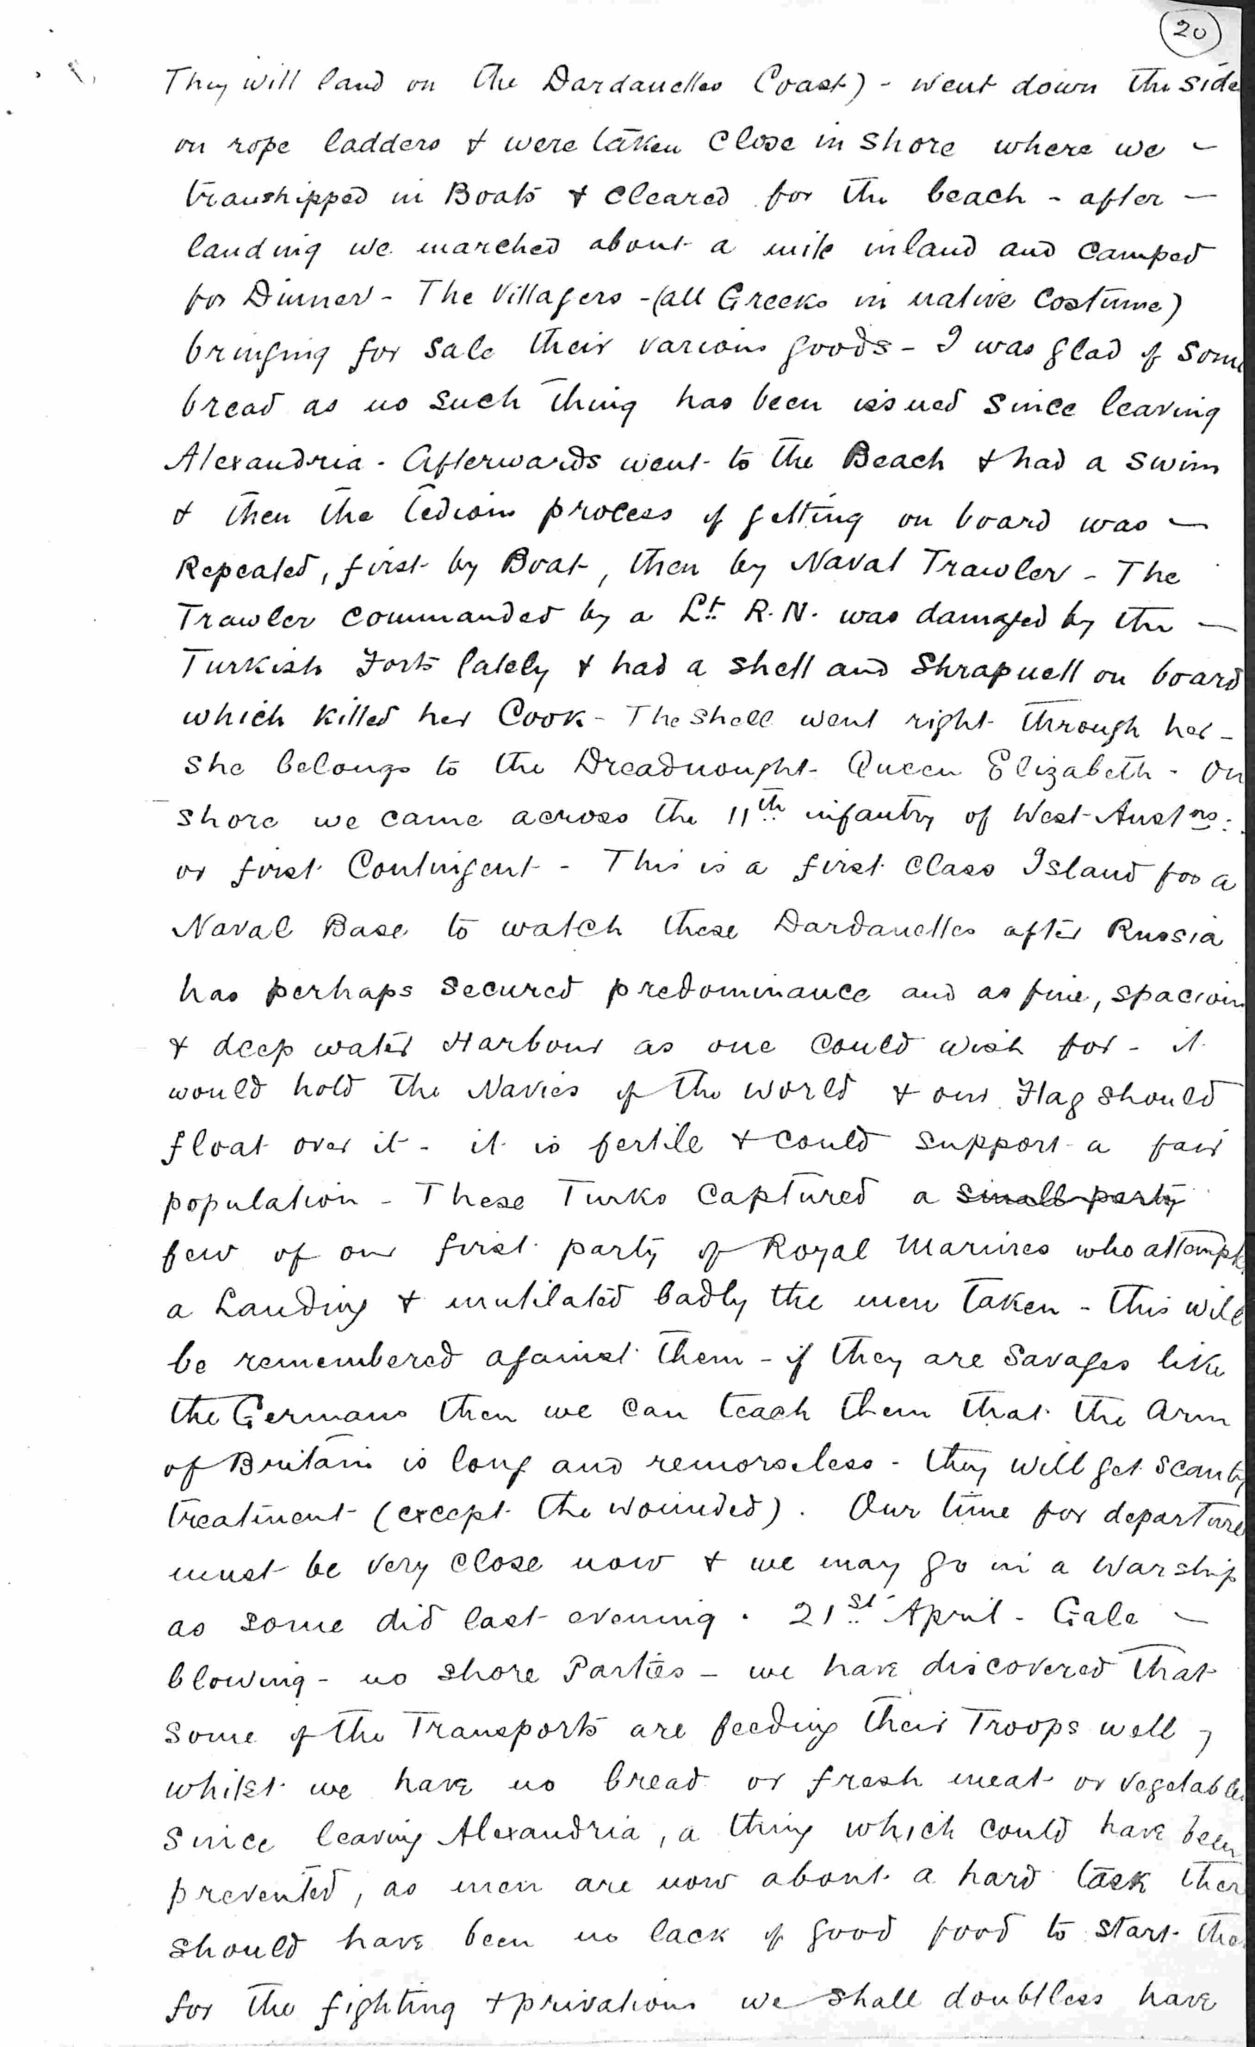 20
They will land on the Dardanelles Coast) - went down the side
on rope ladders & were taken close in shore where we -
transhipped in Boats & cleared for the beach - after -
landing we marched about a mile inland and camped
for Dinner - The Villagers - (all Greeks in native costume)
bringing for sale their various goods - I was glad of some
bread as no such thing has been issued since leaving
Alexandria. Afterwards went to the Beach & had a swim
& then the tedious process of getting on board was -
Repeated, first by Boat, then by Naval Trawler - The
Trawler commanded by a Lt. R.N. was damaged by the -
Turkish Forts lately & had a shell and Shrapnell on board
which killed her Cook - The shell went right through her -
she belongs to the Dreadnought - Queen Elizabeth - On
shore we came across the 11th infantry of West Austns:
or first Contingent - This is a first class Island for a
Naval Base to watch these Dardanelles after Russia
has perhaps secured predominance and as fine, spacious
& deep water Harbour as one could wish for - it
would hold the Navies of the world & our Flag should
float over it - it is fertile & could support a fair
population - These Turks captured a small party
few of our first party of Royal Marines who attempt
a Landing & mutilated badly the men taken - this will
be remembered against them - if they are savages like
the Germans then we can teach them that the Arm
of Britain is long and remorseless - they will get scanty
treatment (except the wounded). Our time for departure
must be very close now & we may go in a Warship
as some did last evening. 21st April - Gale -
blowing - no shore Parties - we have discovered that
some of the Transports are feeding their Troops well,
whilst we have no bread or fresh meat or vegetables
since leaving Alexandria, a thing which could have been
prevented, as men are now about a hard task ther
should have been no lack of good food to start the
for the fighting & privations we shall doubtless have